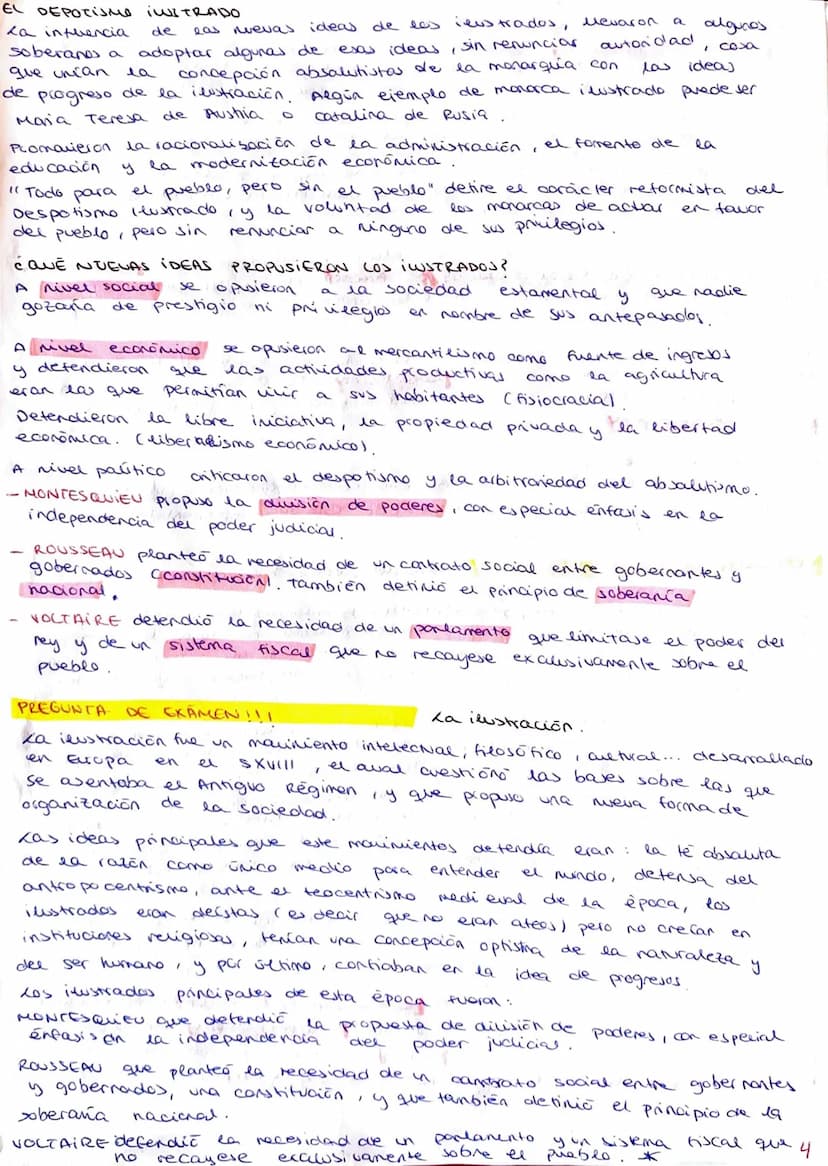 EL DEPOTISMO ILUSTRADO
La influencia de las nuevas ideas de los ilustrados, llevaron a algunos
soberanos a adoptar algunas de esas ideas, sin renunciar autoridad, cosa
que unían la concepción absolutistas de la monarquía con las ideas
de progreso de la ilustración. Algún ejemplo de monarca ilustrado puede ser
Maria Teresa de Austria o Catalina de Rusia.
Promovieron la racionalización de la administración, el fomento de la
educación y la modernización económica.
"Todo para el pueblo, pero sin el pueblo" define el carácter reformista del
Despotismo Ilustrado, y la voluntad de los monarcas de actuar en favor
del pueblo, pero sin renunciar a ninguno de sus privilegios.
¿QUÉ NUEVAS IDEAS PROPUSIERON LOS ILUSTRADOS?
A nivel social se opusieron a la sociedad estamental y que nadie
gozaría de prestigio ni privilegios en nombre de sus antepasados.
A nivel económico se opusieron al mercantilismo como fuente de ingresos
y defendieron que las actividades productivas como la agricultura
eran las que permitían vivir a sus habitantes (fisiocracia).
Defendieron la libre iniciativa, la propiedad privada y la libertad
económica. (liberalismo económico).
A nivel político criticaron el despotismo y la arbitrariedad del absolutismo.
- MONTESQUIEU propuso la división de poderes, con especial énfasis en la
independencia del poder judicial.
- ROUSSEAU planteó la necesidad de un contrato social entre gobernantes y
gobernados (constitución). También definió el principio de soberanía
nacional.
- VOLTAIRE defendió la necesidad de un parlamento que limitase el poder del
rey y de un sistema fiscal que no recayese exclusivamente sobre el
pueblo.
PREGUNTA DE EXÁMEN!!! La ilustración.
La ilustración fue un movimiento intelectual, filosófico, cultural... desarrollado
en Europa en el SXVIII, el cual cuestionó las bases sobre las que
se asentaba el Antiguo Régimen, y que propuso una nueva forma de
organización de la sociedad.
Las ideas principales que este movimientos defendía eran: la fé absoluta
de la razón como único medio para entender el mundo, defensa del
antropocentrismo, ante el teocentrismo medieval de la época, los
ilustrados eran deístas (es decir que no eran ateos) pero no creían en
instituciones religiosas, tenían una concepción optista de la naturaleza y
del ser humano, y por último, confiaban en la idea de progresos.
Los ilustrados principales de esta época fueron:
MONTESQUIEU que defendió la propuesta de división de poderes, con especial
énfasis en la independencia del poder judicial.
ROUSSEAU que planteó la necesidad de un contrato social entre gobernantes
y gobernados, una constitución, y que también definió el principio de la
soberanía nacional.
VOLTAIRE defendió la necesidad de un parlamento y un sistema fiscal que
no recayese exclusivamente sobre el pueblo. *
4